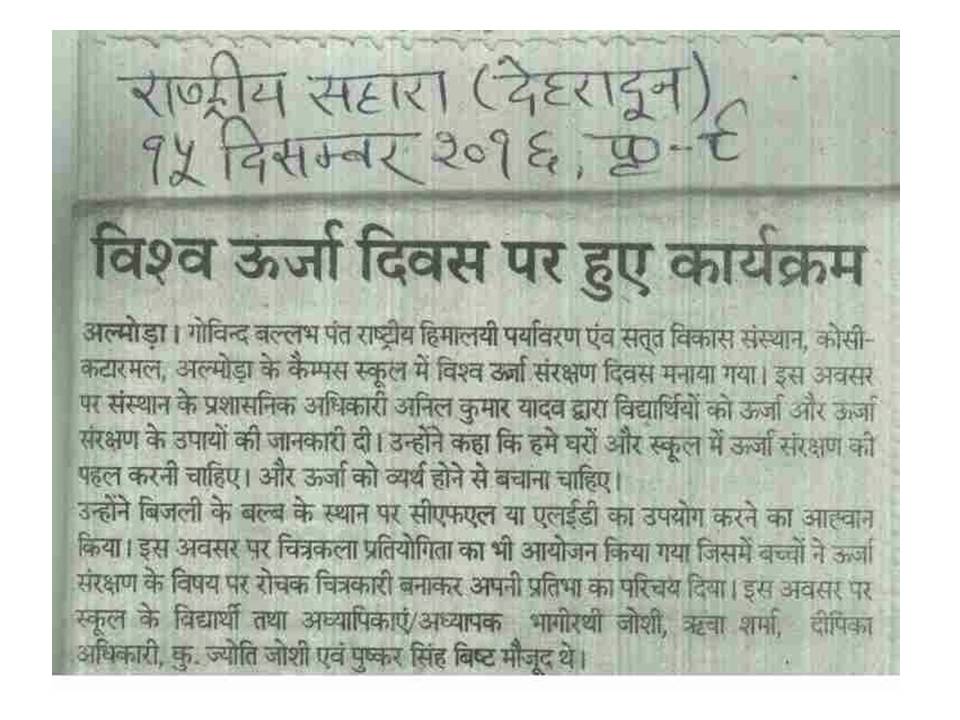 राष्ट्रीय सहारा (देहरादून)
१५ दिसम्बर २०१६, पृ०-९
विश्व ऊर्जा दिवस पर हुए कार्यक्रम
अल्मोड़ा। गोविन्द बल्लभ पंत राष्ट्रीय हिमालयी पर्यावरण एंव सत्त विकास संस्थान, कोसी-
कटारमल, अल्मोड़ा के कैम्पस स्कूल में विश्व ऊर्जा संरक्षण दिवस मनाया गया। इस अवसर
पर संस्थान के प्रशासनिक अधिकारी अनिल कुमार यादव द्वारा विद्यार्थियों को ऊर्जा और ऊर्जा
संरक्षण के उपायों की जानकारी दी। उन्होंने कहा कि हमे घरों और स्कूल में ऊर्जा संरक्षण की
पहल करनी चाहिए। और ऊर्जा को व्यर्थ होने से बचाना चाहिए।
उन्होंने बिजली के बल्ब के स्थान पर सीएफएल या एलईडी का उपयोग करने का आह्वान
किया। इस अवसर पर चित्रकला प्रतियोगिता का भी आयोजन किया गया जिसमें बच्चों ने ऊर्जा
संरक्षण के विषय पर रोचक चित्रकारी बनाकर अपनी प्रतिभा का परिचय दिया। इस अवसर पर
स्कूल के विद्यार्थी तथा अध्यापिकाएं/अध्यापक भागीरथी जोशी, ऋचा शर्मा, दीपिका
अधिकारी, कु. ज्योति जोशी एवं पुष्कर सिंह बिष्ट मौजूद थे।